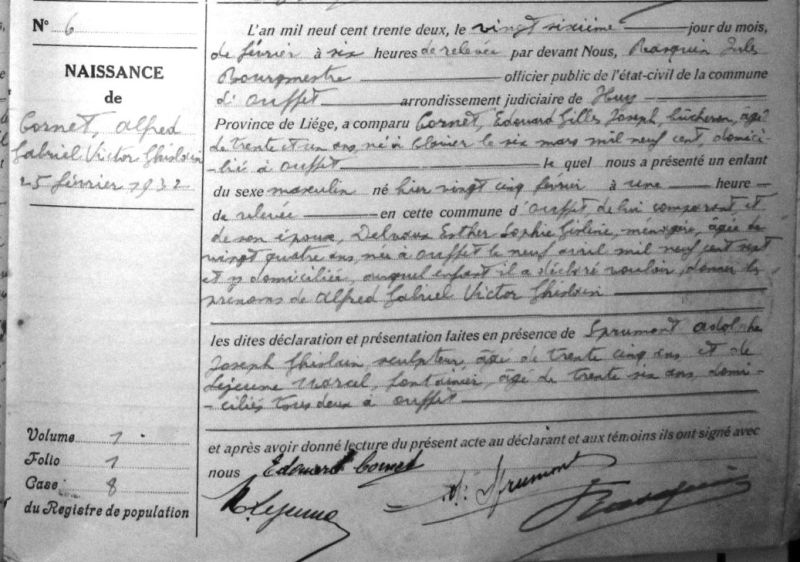 N° 6
NAISSANCE
de
Cornet, Alfred
Gabriel Victor Ghislain
25 février 1932
Volume 1
Folio 1
Case 8
du Registre de population
L'an mil neuf cent trente deux, le vingt sixième jour du mois,
de février à six heures de relevée par devant Nous, Rasquin Jules
Bourgmestre officier public de l'état-civil de la commune
d'Ouffet arrondissement judiciaire de Huy
Province de Liége, a comparu Cornet, Edouard Gilles Joseph, bûcheron, âgé
de trente et un ans, né à Clavier le six mars mil neuf cent, domici-
-lié à Ouffet le quel nous a présenté un enfant
du sexe masculin né hier vingt cinq février à une heure
de relevée en cette commune d'Ouffet, de lui comparant et
de son épouse, Delvaux Esther Sophie ménagère, âgée de
vingt quatre ans, née à Ouffet le neuf avril mil neuf cent sept
et y domiciliée, auquel enfant il a déclaré vouloir donner les
prénoms de Alfred Gabriel Victor Ghislain
les dites déclaration et présentation faites en présence de Sprumont Adolphe
Joseph Ghislain, sculpteur, âgé de trente cinq ans et de
Lejeune Marcel, fontainier, âgé de trente six ans, domi-
-ciliés tous deux à Ouffet
et après avoir donné lecture du présent acte au déclarant et aux témoins ils ont signé avec
nous Edouard Cornet
M. Lejeune A. Sprumont
J Rasquin